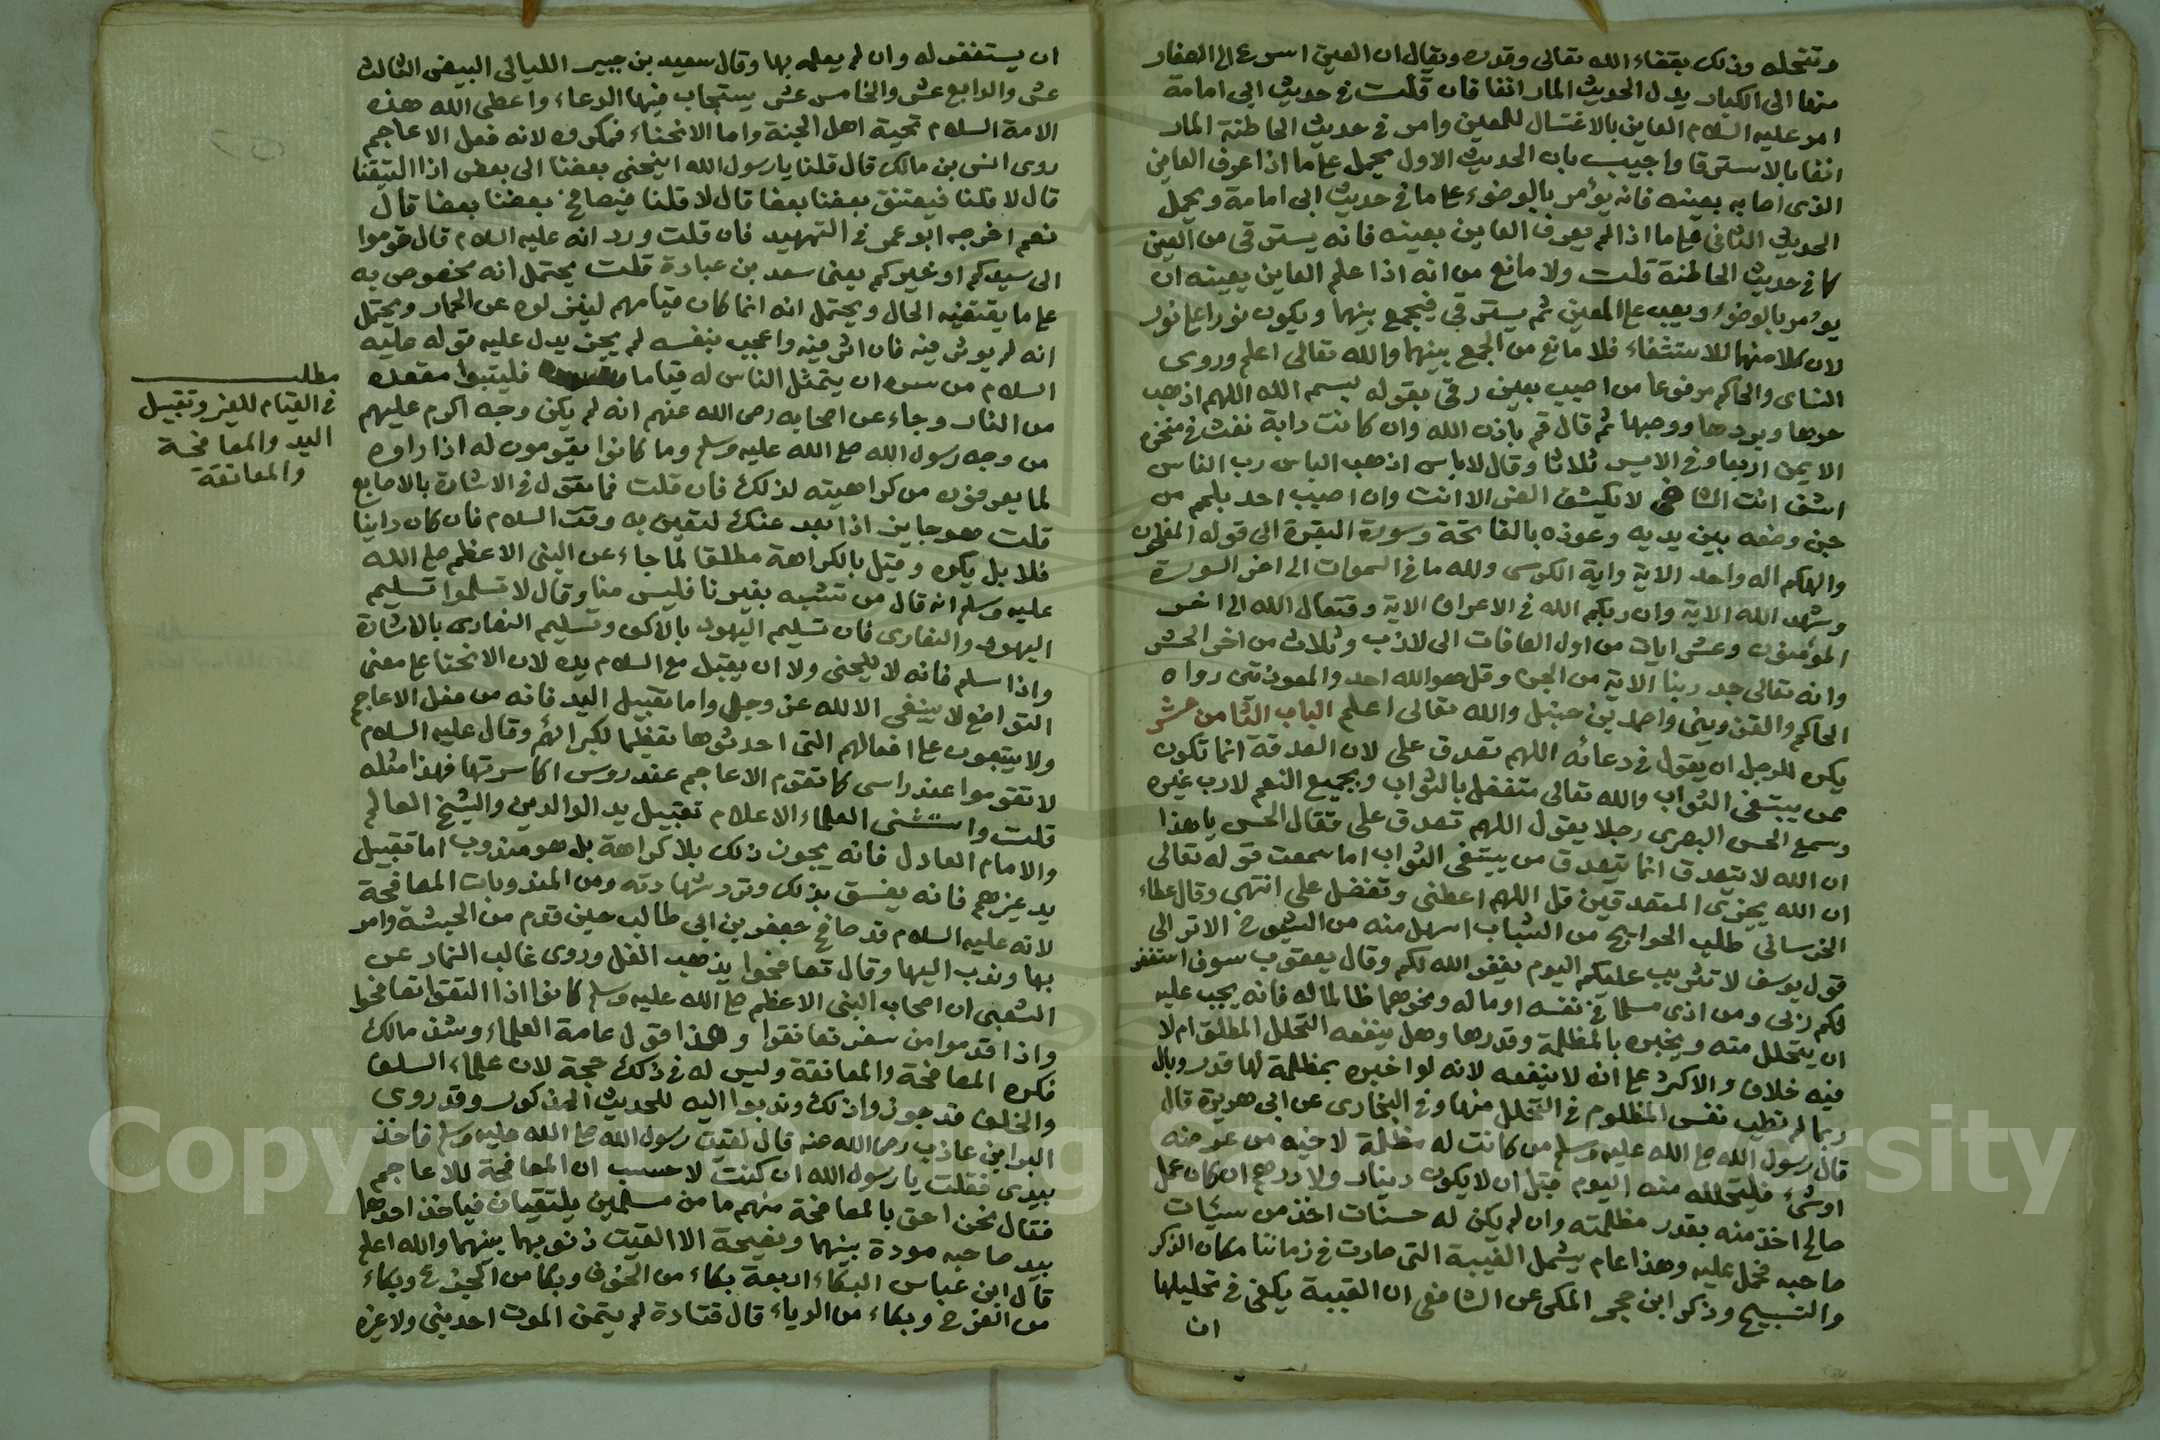 وتتحله وذلك بقضاء الله تعالى وقدره ويقال ان العين اسرع الى الصغار
منها الى الكبار يدل الحديث المار انفا فان قلت في حديث ابي امامة
امر عليه السلام العاين بالاغتسال للمعين وامر في حديث الحاطنة المار
انفا بالاسترقا واجيب بان الحديث الاول يحمل على ما اذا عرف العاين
الذى اصابه بعينه فانه يؤمر بالوضوء على ما في حديث ابي امامة ويحمل
الحديث الثاني على ما اذا لم يعرف العاين بعينه فانه يسترقى من العين
كما في حديث الحاطنة قلت ولا مانع من انه اذا علم العاين بعينه ان
يؤمر بالوضوء ويصب على المعين ثم يسترقى فيجمع بينهما ويكون نورا على نور
لان كلا منهما للاستشفاء فلا مانع من الجمع بينهما والله تعالى اعلم وروى
النساى والحاكم مرفوعا من اصيب بعين رقى بقوله بسم الله اللهم اذهب
حرها وبردها ووصبها ثم قال قم باذن الله وان كانت دابة نفث في منخره
الايمن اربعا وفي الايسر ثلاثا وقال لا باس اذهب الباس رب الناس
اشف انت الشافي لا يكشف الضر الا انت وان اصيب احد بلمم من
جن وضعه بين يديه وعوذه بالفاتحة وسورة البقرة الى قوله المفلحون
والهكم اله واحد الاية واية الكرسى ولله ما في السموات الى اخر السورة
وشهد الله الاية وان ربكم الله في الاعراف الاية وفتعال الله الى اخر
المؤمنون وعشر ايات من اول الصافات الى لازب وثلاث من اخر الحشر
وانه تعالى جد ربنا الاية من الجن وقل هو الله احد والمعوذتين رواه
الحاكم والقزوينى واحمد بن حنبل والله تعالى اعلم الباب الثامن عشر
يكره للرجل ان يقول في دعائه اللهم تصدق على لان الصدقة انما تكون
ممن يبتغى الثواب والله تعالى متفضل بالثواب وبجميع النعم لا رب غيره
وسمع الحسن البصرى رجلا يقول اللهم تصدق على فقال الحسن يا هذا
ان الله لا يتصدق انما يتصدق من يبتغى الثواب اما سمعت قوله تعالى
ان الله يجزى المتصدقين قل اللهم اعطنى وتفضل على انتهى وقال عطاء
الخرسانى طلب الحوايج من الشباب اسهل منه من الشيوخ الا ترى الى
قول يوسف لا تثريب عليكم اليوم يغفر الله لكم وقال يعقوب سوف استغفر
لكم ربى ومن اذى مسلما في نفسه او ماله ونحوهما ظالما له فانه يجب عليه
ان يتحلل منه ويخبره بالمظلمة وقدرها وهل ينفعه التحلل المطلق ام لا
فيه خلاف والاكثر على انه لا ينفعه لانه لو اخبره بمظلمة لها قدر وبال
ربما لم تطيب نفس المظلوم في التحلل منها وفي البخارى عن ابي هريرة قال
قال رسول الله صلى الله عليه وسلم من كانت له مظلمة لاخيه من عرضه
او شئ فليتحلله منه اليوم قبل ان لا يكون دينار ولا درهم ان كان عمل
صالح اخذ منه بقدر مظلمته وان لم يكن له حسنات اخذ من سيئات
صاحبه فحمل عليه وهذا عام يشمل الغيبة التى صارت في زماننا مكان الذكر
والتسبيح وذكر ابن حجر المكى عن الشافعى ان الغيبة يكفى في تحليلها
ان
ان يستغفر له وان لم يعلمه بها وقال سعيد بن جبير الليالى البيض الثالث
عشر والرابع عشر والخامس عشر يستجاب فيها الدعاء واعطى الله هذه
الامة السلام تحية اهل الجنة واما الانحناء فمكروه لانه فعل الاعاجم
روى انس بن مالك قال قلنا يا رسول الله اينحنى بعضنا الى بعض اذا التقينا
قال لا قلنا فيعتنق بعضنا بعضا قال لا قلنا فيصافح بعضنا بعضا قال
نعم اخرجه ابو عمر في التمهيد فان قلت ورد انه عليه السلام قال قوموا
الى سيدكم او خيركم يعنى سعد بن عبادة قلت يحتمل انه مخصوص به
على ما يقتضيه الحال ويحتمل انه انما كان قيامهم لينزلوه عن الحمار ويحتمل
انه لم يوثر فيه فان اثر فيه واعجب بنفسه لم يجز يدل عليه قوله عليه
السلام من سره ان يتمثل الناس له قياما فليتبوا مقعده
من النار وجاء عن اصحابه رضى الله عنهم انه لم يكن وجه اكرم عليهم
من وجه رسول الله صلى الله عليه وسلم وما كانوا يقومون له اذا راوه
لما يعرفون من كراهيته لذلك فان قلت فما تقول في الاشارة بالاصابع
قلت هو جايز اذا بعد عنك لتعين به وقت السلام فان كان دانيا
فلا بل يكره وقيل بالكراهة مطلقا لما جاء عن النبى الاعظم صلى الله
عليه وسلم انه قال من تشبه بغيرنا فليس منا وقال لا تسلموا تسليم
اليهود والنصارى فان تسليم اليهود بالاكف وتسليم النصارى بالاشارة
واذا سلم فانه لا ينحنى ولا ان يقبل مع السلام يده لان الانحنا على معنى
التواضع لا ينبغى الا لله عز وجل واما تقبيل اليد فانه من فعل الاعاجم
ولا يتبعون على افعالهم التى احدثوها تعظيما لكبرائهم وقال عليه السلام
لا تقوموا عند راسى كما تقوم الاعاجم عند روس اكاسرتها فهذا مثله
قلت واستثنى العلماء الاعلام تقبيل يد الوالدين والشيخ العالم
والامام العادل فانه يجوز ذلك بلا كراهة بل هو مندوب اما تقبيل
يد غيرهم فانه يفسق بذلك وترد شهادته ومن المندوبات المصافحة
لانه عليه السلام قد صافح جعفر بن ابي طالب حين قدم من الحبشة وامر
بها وندب اليها وقال تصافحوا يذهب الغل وروى غالب التمار عن
الشعبى ان اصحاب النبى الاعظم صلى الله عليه وسلم كانوا اذا التقوا تصافحوا
واذا قدموا من سفر تعانقوا وهذا قول عامة العلماء وشذ مالك
فكره المصافحة والمعانقة وليس له في ذلك حجة لان علماء السلف
والخلف قد جوزوا ذلك وندبوا اليه للحديث المذكور وقد روى
البرا بن عازب رضى الله عنه قال لقيت رسول الله صلى الله عليه وسلم فاخذ
بيدى فقلت يا رسول الله ان كنت لاحسب ان المصافحة للاعاجم
فقال نحن احق بالمصافحة منهم ما من مسلمين يلتقيان فياخذ احدهما
بيد صاحبه مودة بينهما ونصيحة الا القيت ذنوبهما بينهما والله اعلم
قال ابن عباس البكاء اربعة بكاء من الخوف وبكا من الجزع وبكاء
من الفرح وبكاء من الرياء قال قتادة لم يتمن الموت احد نبى ولا غيره
مطلب
في القيام للغير وتقبيل
اليد والمصافحة
والمعانقة